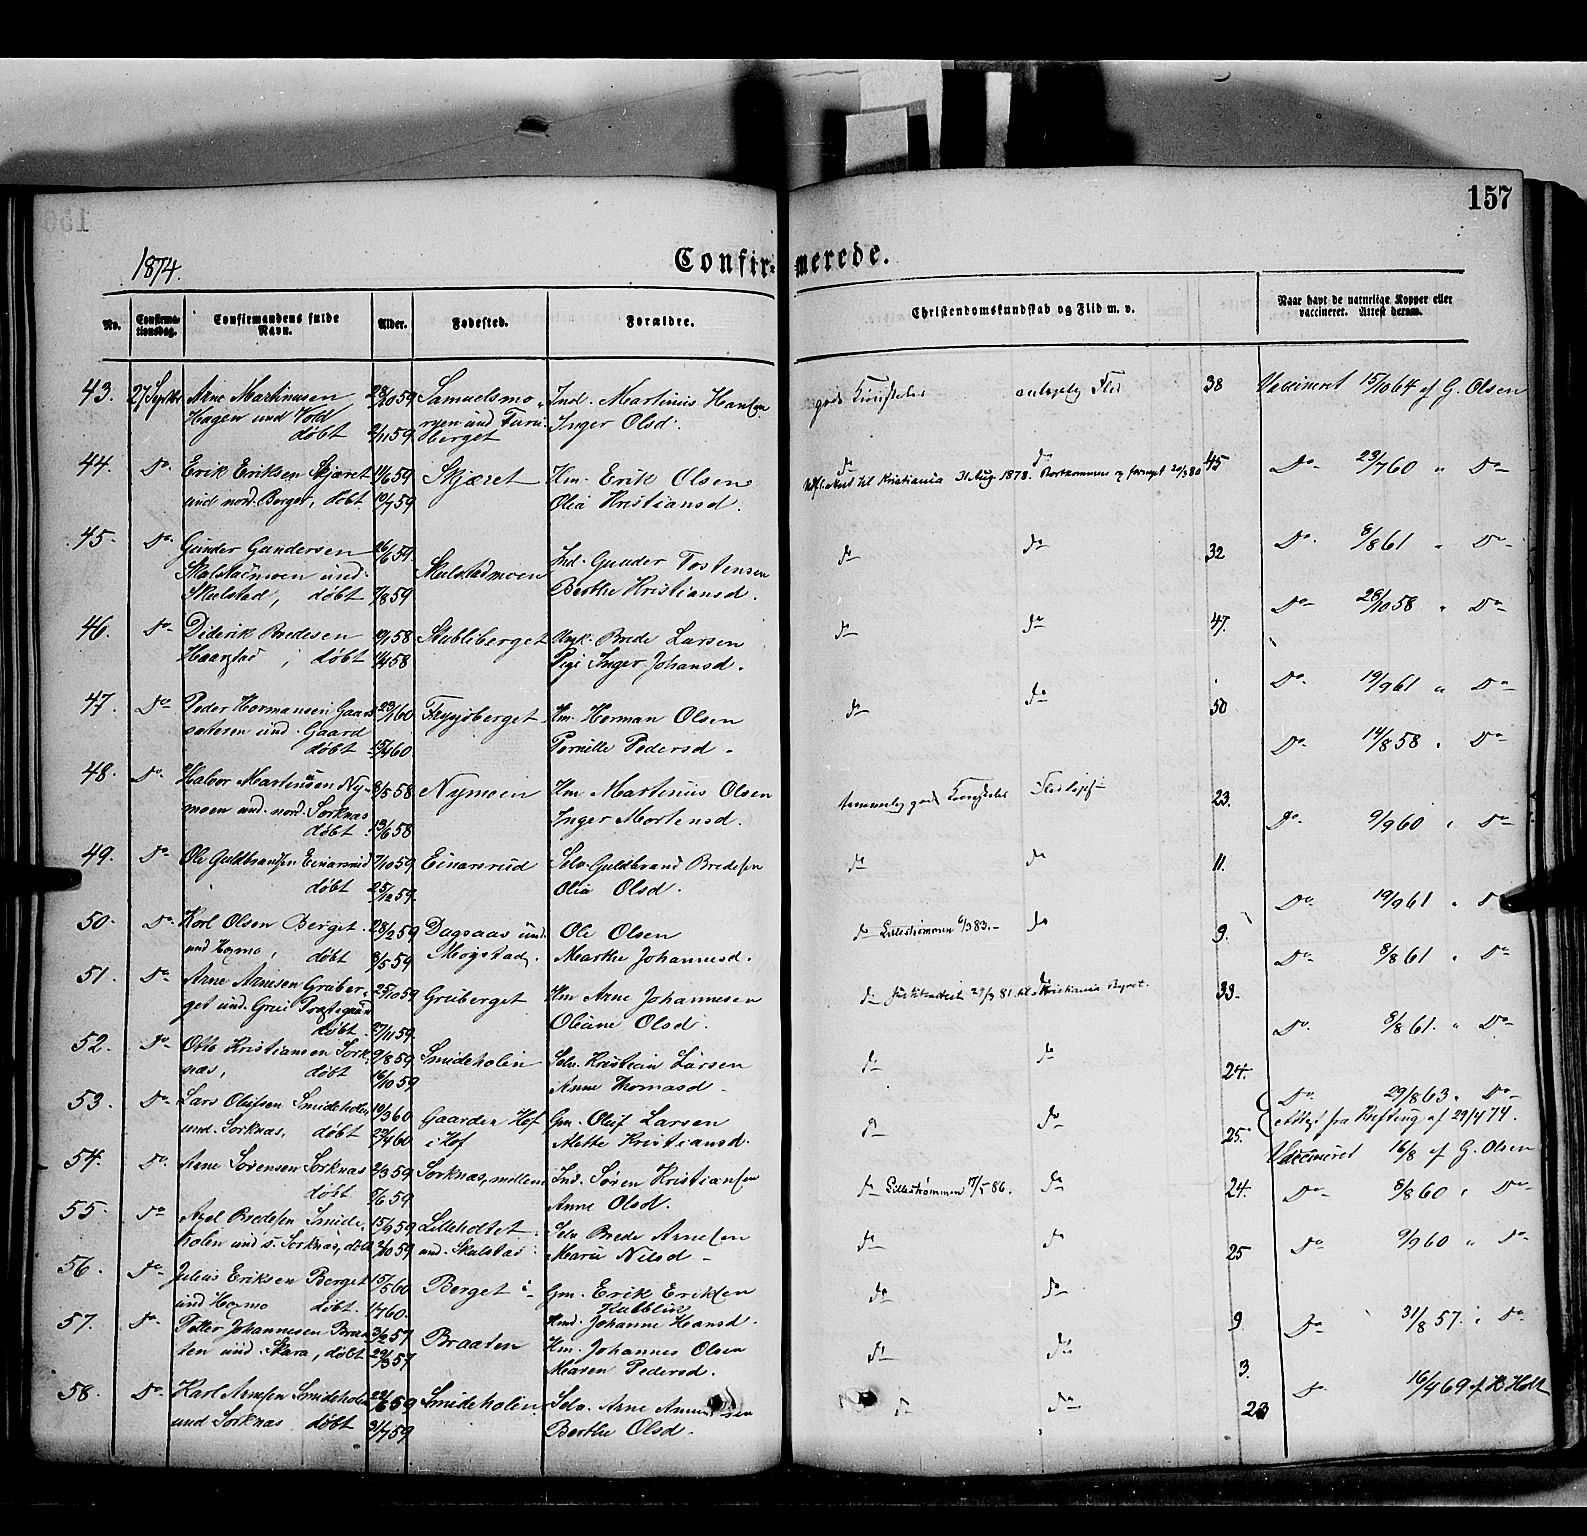 157
1874.
Confirmerede.
No.
Confirmationsdag.
Confirmandens fulde Navn.
Alder.
Fødested.
Forældre.
Christendomskundskab og Flid m. v.
Naar havt de naturlige Kopper eller vaccineret. Attest derom.
43. 27 Septbr Arne Martinusen 28/10 59 Samuelsmo Ind. Martinus Hansen gode Kundskaber Flid 38 Vaccineret 15/10 64 af G. Olsen
Hagen und Vold berget Inger Olsd.
døbt 2/11 59
44. Do. Erik Eriksen Skjæret 11/6 59 Skjæret Hm. Erik Olsen do do 45 Do. 23/7 60 " Do
und nord. Berget, døbt 10/7 59 Olia Kristiansd. til Kristiania 31 Aug. 1878.
45. Do. Gunder Gundersen 26/6 59 Skulstadmoen Ind. Gunder Tostensen do do 32 Do. 8/8 61 " Do
Skulstadmoen und. Berthe Kristiansd.
Skulstad, døbt 7/8 59
46. Do Diderik Bredesen Stubliberget Brede Larsen do do 47. Do 28/10 58 " Do
Haarstad, døbt Pige Inger Johansd.
47. Do Peder Hermansen Fløysberget Hm. Herman Olsen do do 50 Do. 19/9 61 " Do
und. Gaard Pernille Pedersd.
døbt 15/4 60
48. Do. Halvor Martinusen Ny- 8/5 58 Nymoen Hm Martinus Olsen temmelig gode Kundskaber 23. Do. 14/8 58 " Do
moen und. nord. Sorknæs Inger Mortensd.
døbt 13/6 58
49. Do Ole Guldbrandsen Einarsrud 7/10 59 Einarsrud Selv. Guldbrand Bredesen do do 11. Do. 9/9 60 " Do
døbt 25/12 59 Olia Olsd.
50. Do Karl Olsen Berget 28/2 59 Dagsaas und. Ole Olsen do Lillestrømmen 6/3 83. do 9. Do. 19/9 61 " Do
und døbt 8/5 59 Mogstad. Marthe Johannesd.
51. Do. Arne Arnesen Gruber- 25/10 59 Gruberget Hm Arne Johannesen do 81 Kristiania 33. Do. 8/8 61 " Do
get und. Grue Præstegaard Oliane Olsd.
døbt 27/11 59.
52. Do Otto Kristiansen Sork- 9/8 59 Smideholen Selv. Kristian Larsen do do 24. Do. 8/8 61. " Do
næs, døbt 16/10 59 Anne Thomasd.
53. Do Lars Olufsen Smideholen 10/3 60 Gaarder Hof Gm. Oluf Larsen do do 25. Do. 29/8 63. Do
und. Sorknæs, døbt 22/4 60 i Hof Alette Kristiansd. attest fra af 29/4 74.
54. Do. Arne Sørensen Sorknæs 2/3 59 Sorknæsmøllen Ind. Søren Kristiansen do Lillestrømmen 7/5 86. do 24. Vaccineret 16/8 af G. Olsen
døbt 5/6 59 Anne Olsd.
55 Do Axel Bredesen Smide- 15/9 59 Lilleholtet Selv Brede Arnesen do do 25 Do 8/8 60 " Do
holen und s. Sorknæs, døbt 2/10 59 und. Skulstad Marie Nilsd
56. Do Julius Eriksen Berget 15/5 60 Berget Gm. Erik Eriksen do do 9 Do 9/9 60 " Do
und døbt 1/7 60. Johanne Hansd.
57. Do. Petter Johannesen Braa- 3/2 57 Braaten Hm. Johannes Olsen do do 3. Do 31/8 57. " Do
ten und. Skara, døbt 29/3 57 Maren Pedersd.
58 Do. Karl Arnesen Smideholen 22/6 59 Smideholen Selv. Arne do do 23 Do. 16/4 69 af H Holt
und Sorknæs døbt 31/7 59 Berthe Olsd.